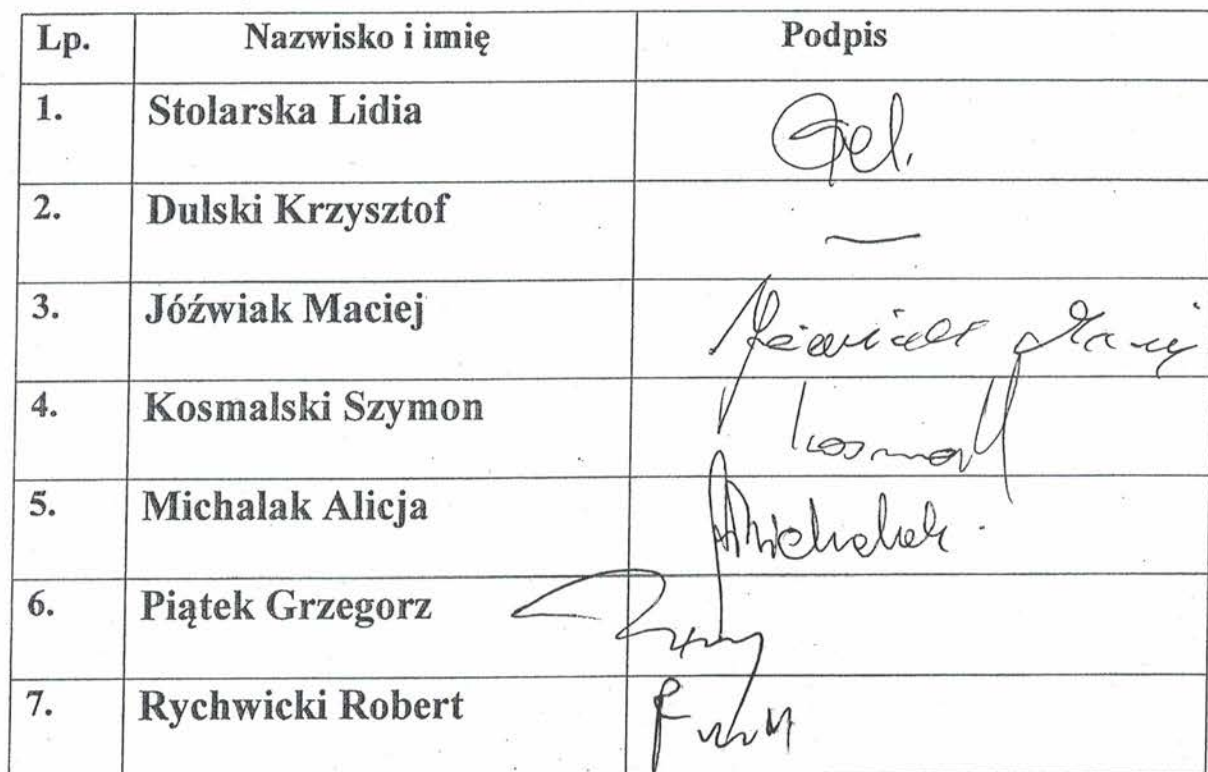 Lp. Nazwisko i imię Podpis
1. Stolarska Lidia
2. Dulski Krzysztof —
3. Jóźwiak Maciej Jóźwiak Maciej
4. Kosmalski Szymon
5. Michalak Alicja AMichalak.
6. Piątek Grzegorz
7. Rychwicki Robert